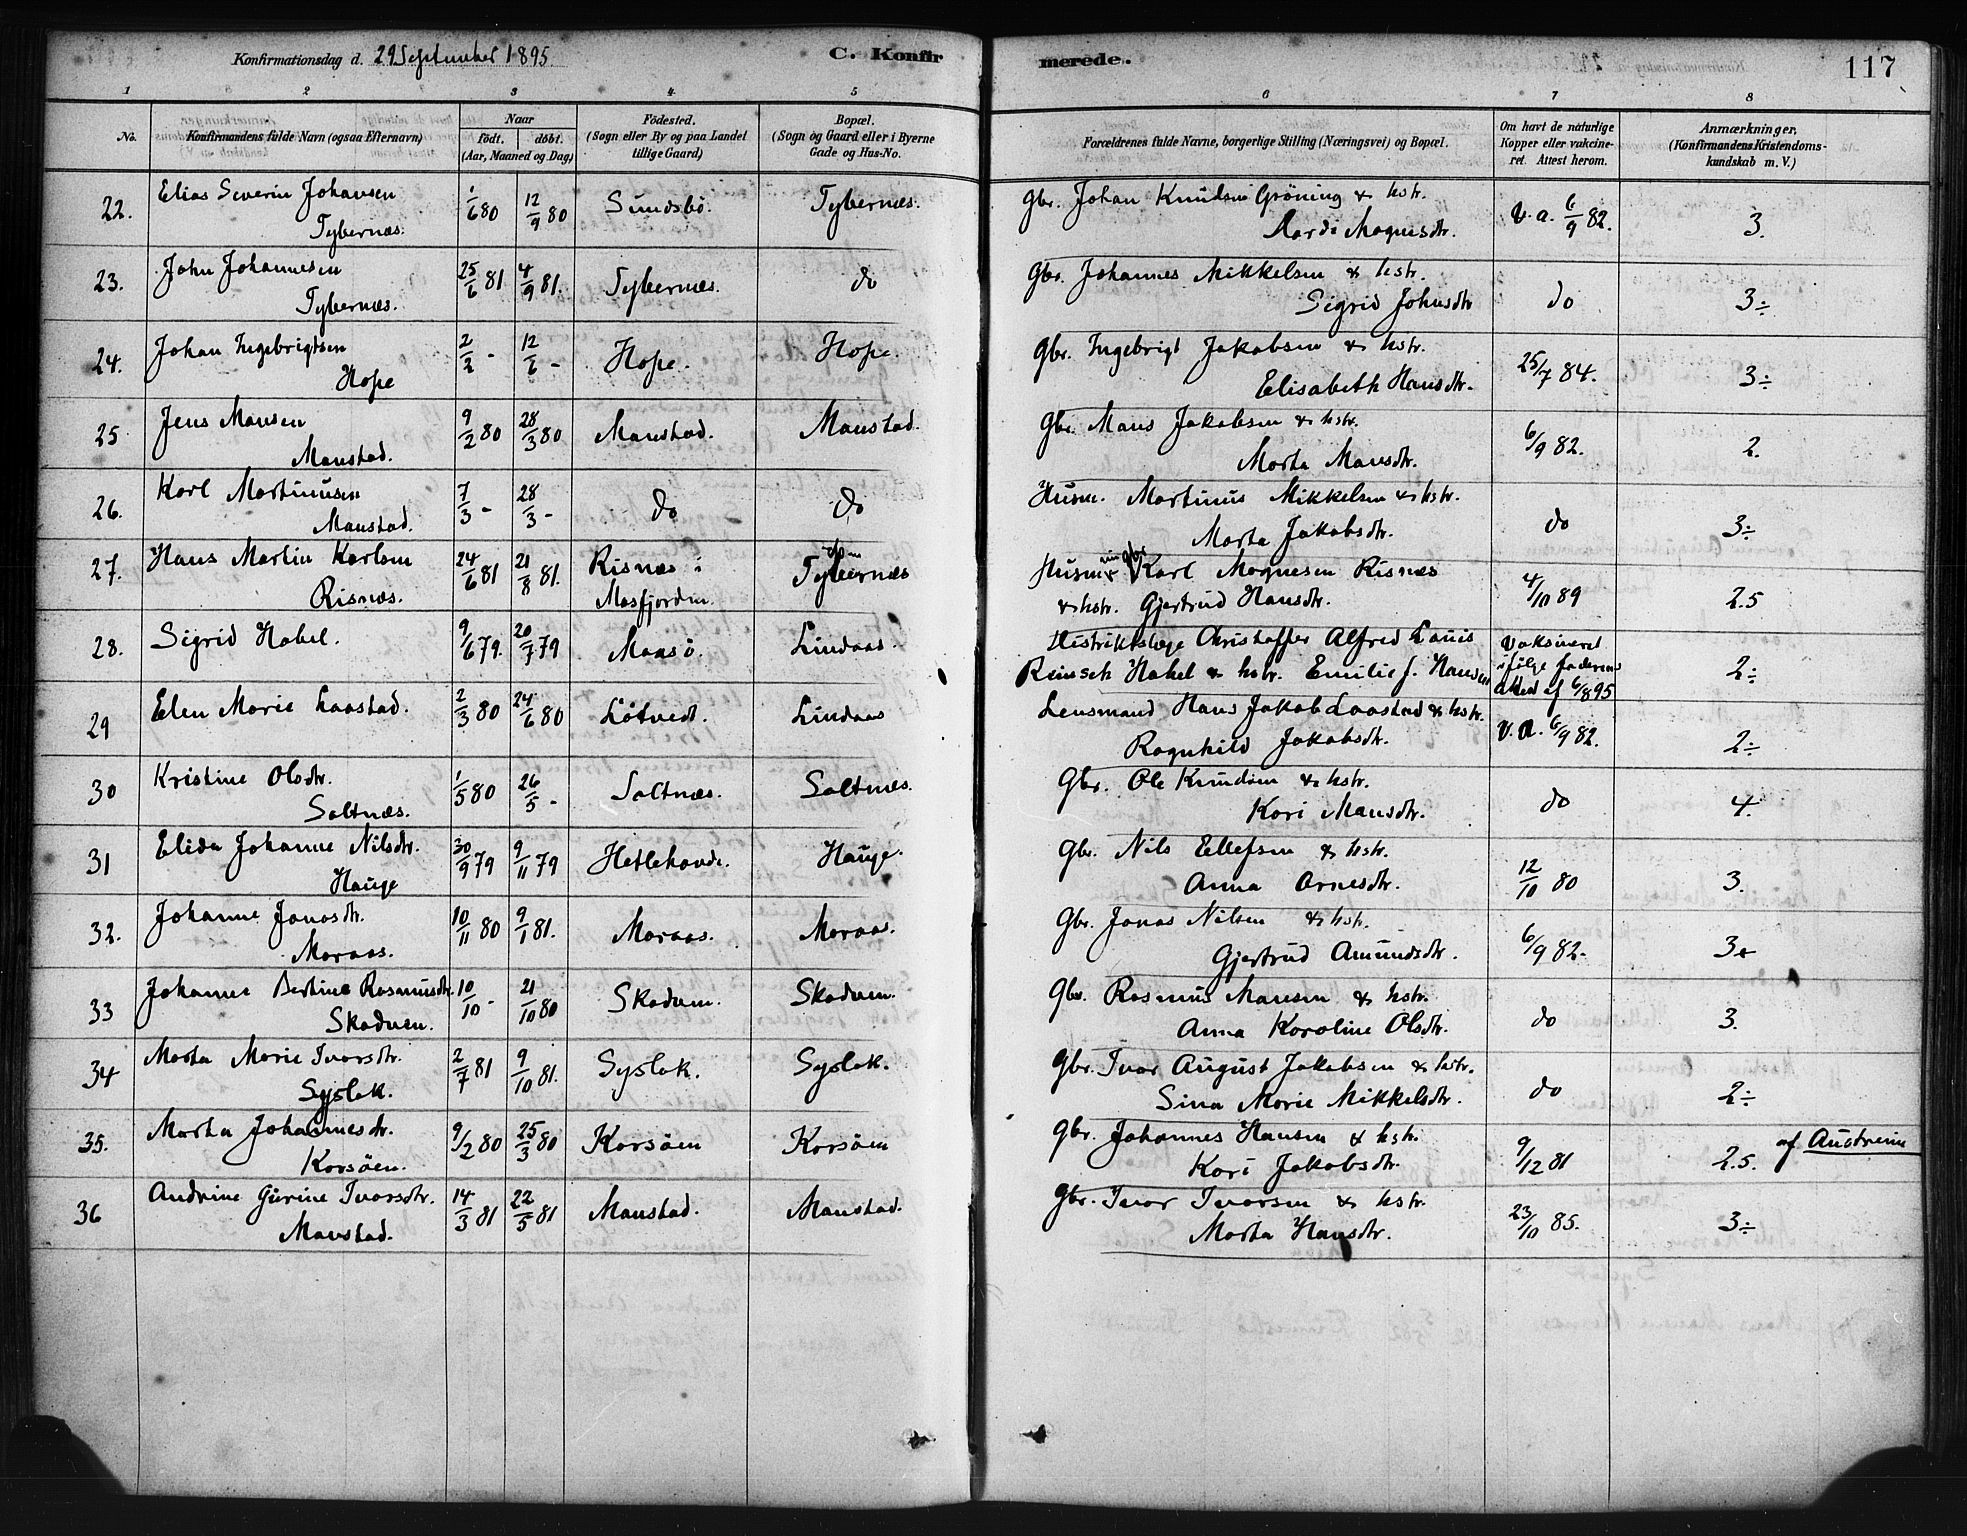 Konfirmationsdag d. 29 September 1895.
C. Konfirmerede.
117
1 2 3 4 5 6 7 8
No.
Konfirmandens fulde Navn (ogsaa Efternavn)
Naar
født. døbt.
(Aar, Maaned og Dag)
Fødested.
(Sogn eller By og paa Landet
tillige Gaard)
Bopæl.
(Sogn og Gaard eller i Byerne
Gade og Hus-No.
Forældrenes fulde Navne, borgerlige Stilling (Næringsvei) og Bopæl.
Om havt de naturlige
Kopper eller vakcine-
ret. Attest herom.
Anmærkninger,
(Konfirmandens Kristendoms-
kundskab m. V.)
22. Elias Severin Johansen 1/6 80 12/9 80 Sundsbø. Tybernæs. Gbr. Johan Knudsen Gröning & hstr. V. a. 6/9 82. 3.
Tybernæs. Magnsdtr.
23. John Johannesen 25/6 81 4/9 81. Tybernæs. do Gbr. Johannes Mikkelsen & hstr. do 3÷
Tybernæs. Sigrid Johnsdtr
24. Johan Ingebrigtsen 2/2 - 12/6 - Hope. Hope. Gbr. Ingebrigt Jakobsen & hstr. 25/7 84. 3÷
Hope Elisabeth Hansdtr.
25 Jens Mansen 9/2 80 28/3 80 Manstad. Manstad. Gbr. Mans Jakobsen & hstr. 6/9 82. 2.
Manstad. Marta Mansdtr.
26. Karl Martinusen 7/3 - 28/3 - do do Husm. Martinus Mikkelsen & hstr. do 3÷
Manstad. Marta Jakobsdtr.
27. Hans Martin Karlsen 24/6 81 21/8 81. Risnæs i Tybernæs Husm. Karl Magnesen Risnæs 4/10 89 2.5
Risnæs. Masfjorden. & hstr. Gjertrud Hansdtr.
28. Sigrid Habel. 9/6 79. 20/7 79 Maasö. Lindaas. Distriktslæge Christoffer Alfred Louis Vaksineret 2÷
Reinsch Habel & hstr. Emilie J. Hansen ifölge faderens
attest af 6/8 95
29 Elen Marie Laastad. 2/3 80 24/6 80 Løtvedt. Lindaas Lensmand Hans Jakob Laastad & hstr. V. a. 6/9 82. 2÷
Ragnhild Jakobsdtr.
30 Kristine Olsdtr. 1/5 80 26/5 - Saltnæs. Saltnæs. Gbr. Ole Knudsen & hstr. do 4.
Saltnæs. Kari Mansdtr.
31 Elida Johanne Nilsdtr. 30/9 79 9/11 79 Hauge. Gbr. Nils Ellefsen & hstr. 12/10 80 3.
Hauge Anna Arnesdtr.
32. Johanne Jonasdtr. 10/11 80 9/1 81. Maraas. Maraas. Gbr. Jonas Nilsen & hstr. 6/9 82. 3+
Maraas. Gjertrud Amundsdtr.
33 Johanne Bertine Rasmusdtr. 10/10 - 21/10 80 Skodven. Skodven. Gbr. Rasmus Mansen & hstr. do 3.
Skodven. Anna Karoline Olsdtr.
34 Marta Marie Ivarsdtr. 2/7 81 9/10 81. Syslak. Syslak. Gbr. Ivar August Jakobsen & hstr. do 2÷
Syslak. Sina Marie Mikkelsdtr.
35. Marta Johannesdtr. 9/2 80 25/3 80 Korsöen Korsöen Gbr. Johannes Hansen & hstr. 9/12 81 2.5. af Austreim
Korsöen. Kari Jakobsdtr.
36 Andrine Gurine Ivarsdtr. 14/3 81 22/5 81 Manstad. Manstad. Gbr. Ivar Ivarsen & hstr. 23/10 85. 3÷
Manstad. Marta Hansdtr.